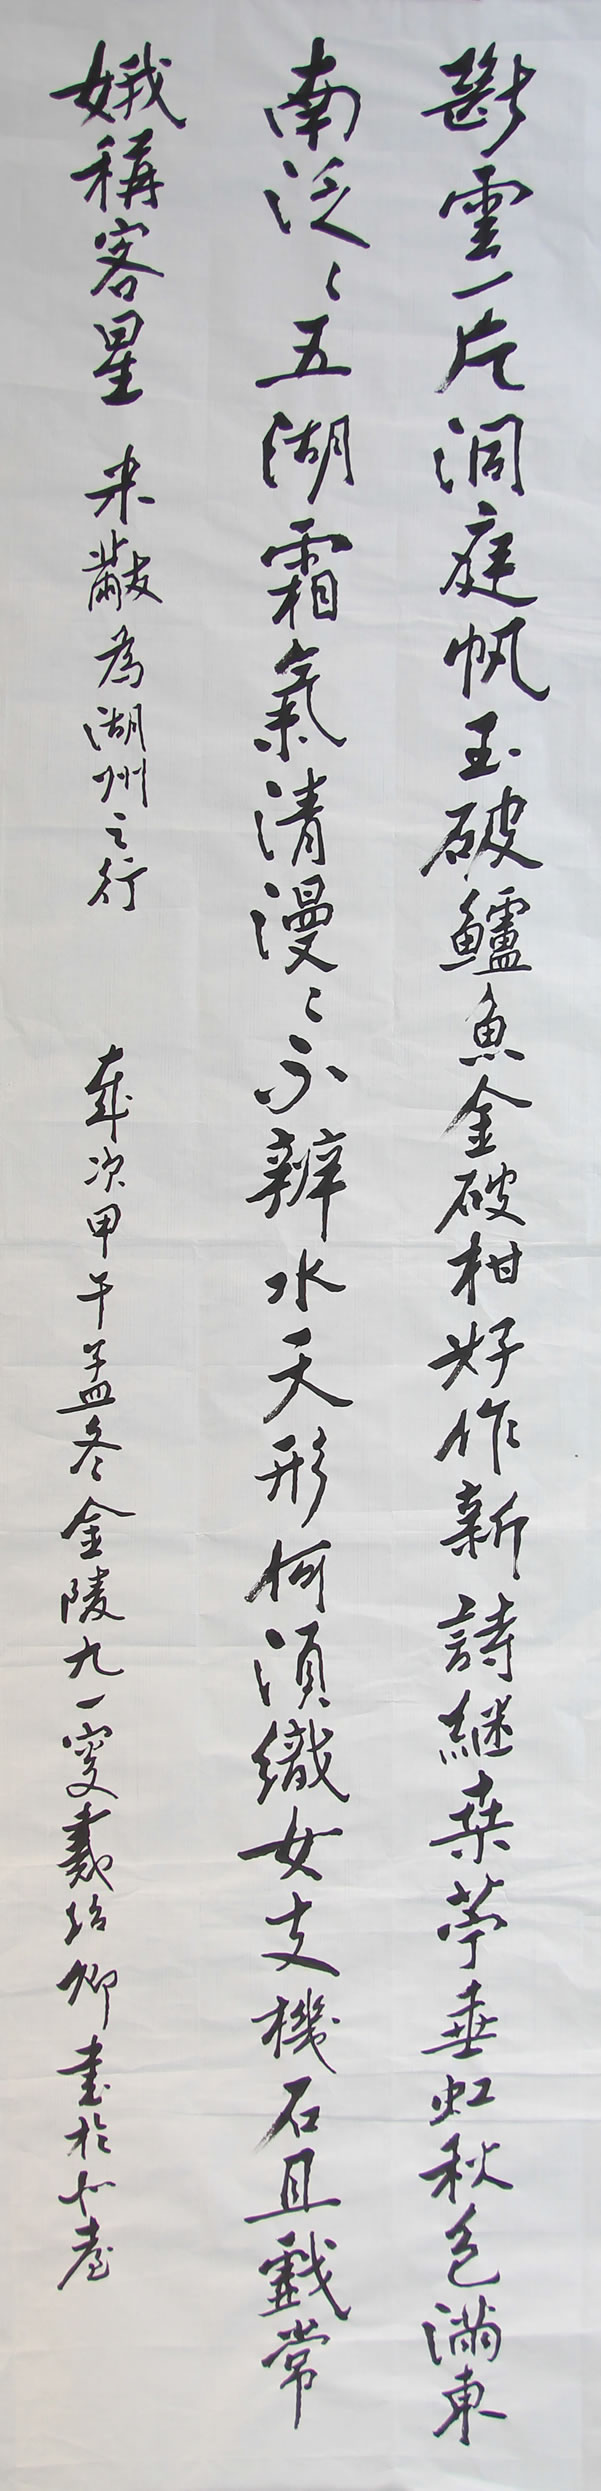 斷雲一片洞庭帆玉破鱸魚金破柑好作新詩繼桑苧垂虹秋色滿東
南泛〻五湖霜氣清漫〻不辨水天形何須織女支機石且戲常
娥稱客星 米黻為湖州之行 歲次甲午孟冬金陵九一叟戴紹卿書於心臺